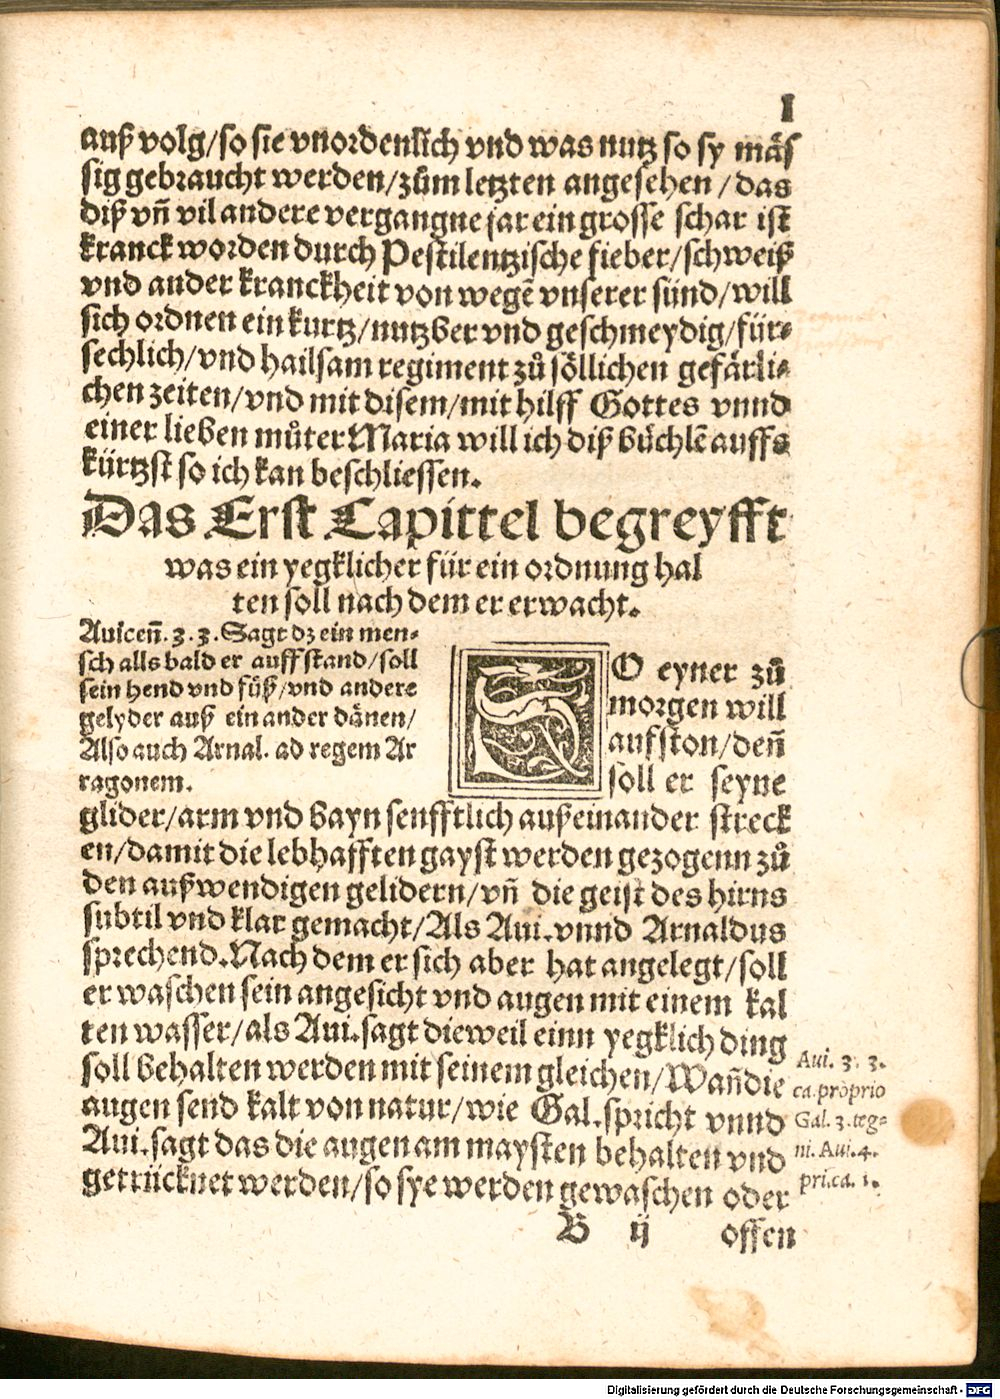 I
auß volg/so sie vnordenlich vnd was nutz so sy mäs
sig gebraucht werden/zům letzten angesehen/das
diß vn̄ vil andere vergangne jar ein grosse schar ist
kranck worden durch Pestilentzische fieber/schweiß
vnd ander kranckheit von wegē vnserer sünd/will
sich ordnen ein kurtz/nutzber vnd geschmeydig/für-
sechlich/vnd hailsam regiment zů söllichen gefärli-
chen zeiten/vnd mit disem/mit hilff Gottes vnnd
einer lieben můter Maria will ich diß büchlē auffs
kürtzst so ich kan beschliessen.
Das Erst Capittel begreyfft
was ein yegklicher für ein ordnung hal
ten soll nach dem er erwacht.
Auicen̄. 3. 3. Sagt dz ein men-
sch alls bald er auffstand/soll
sein hend vnd füß/vnd andere
gelyder auß ein ander dänen/
Also auch Arnal. ad regem Ar
ragonem.
SO eyner zů
morgen will
aufston/den̄
soll er seyne
glider/arm vnd bayn senfftlich außeinander streck
en/damit die lebhafften gayst werden gezogenn zů
den außwendigen gelidern/vn̄ die geist des hirns
subtil vnd klar gemacht/Als Aui. vnnd Arnaldus
sprechend. Nach dem er sich aber hat angelegt/soll
er waschen sein angesicht vnd augen mit einem kal
ten wasser/als Aui. sagt dieweil einn yegklich ding
soll behalten werden mit seinem gleichen/Wan̄ die
augen send kalt von natur/wie Gal. spricht vnnd
Aui. sagt das die augen am maysten behalten vnd
getrücknet werden/so sye werden gewaschen oder
Aui. 3. 3.
ca. proprio
Gal. 3. teg-
ni. Aui. 4.
pri. ca. 1.
B ij offen
Digitalisierung gefördert durch die Deutsche Forschungsgemeinschaft - DFG